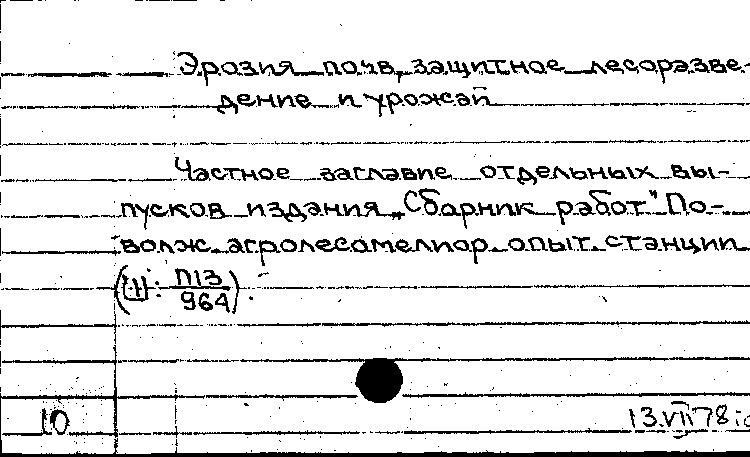 Эрозия почв, защитное лесоразве-
дение и урожай
Частное заглавие отдельных вы-
пусков издания „Сборник работ" По-
волж. агролесомелиор. опыт. станции
П13
964
10
13.VII 78